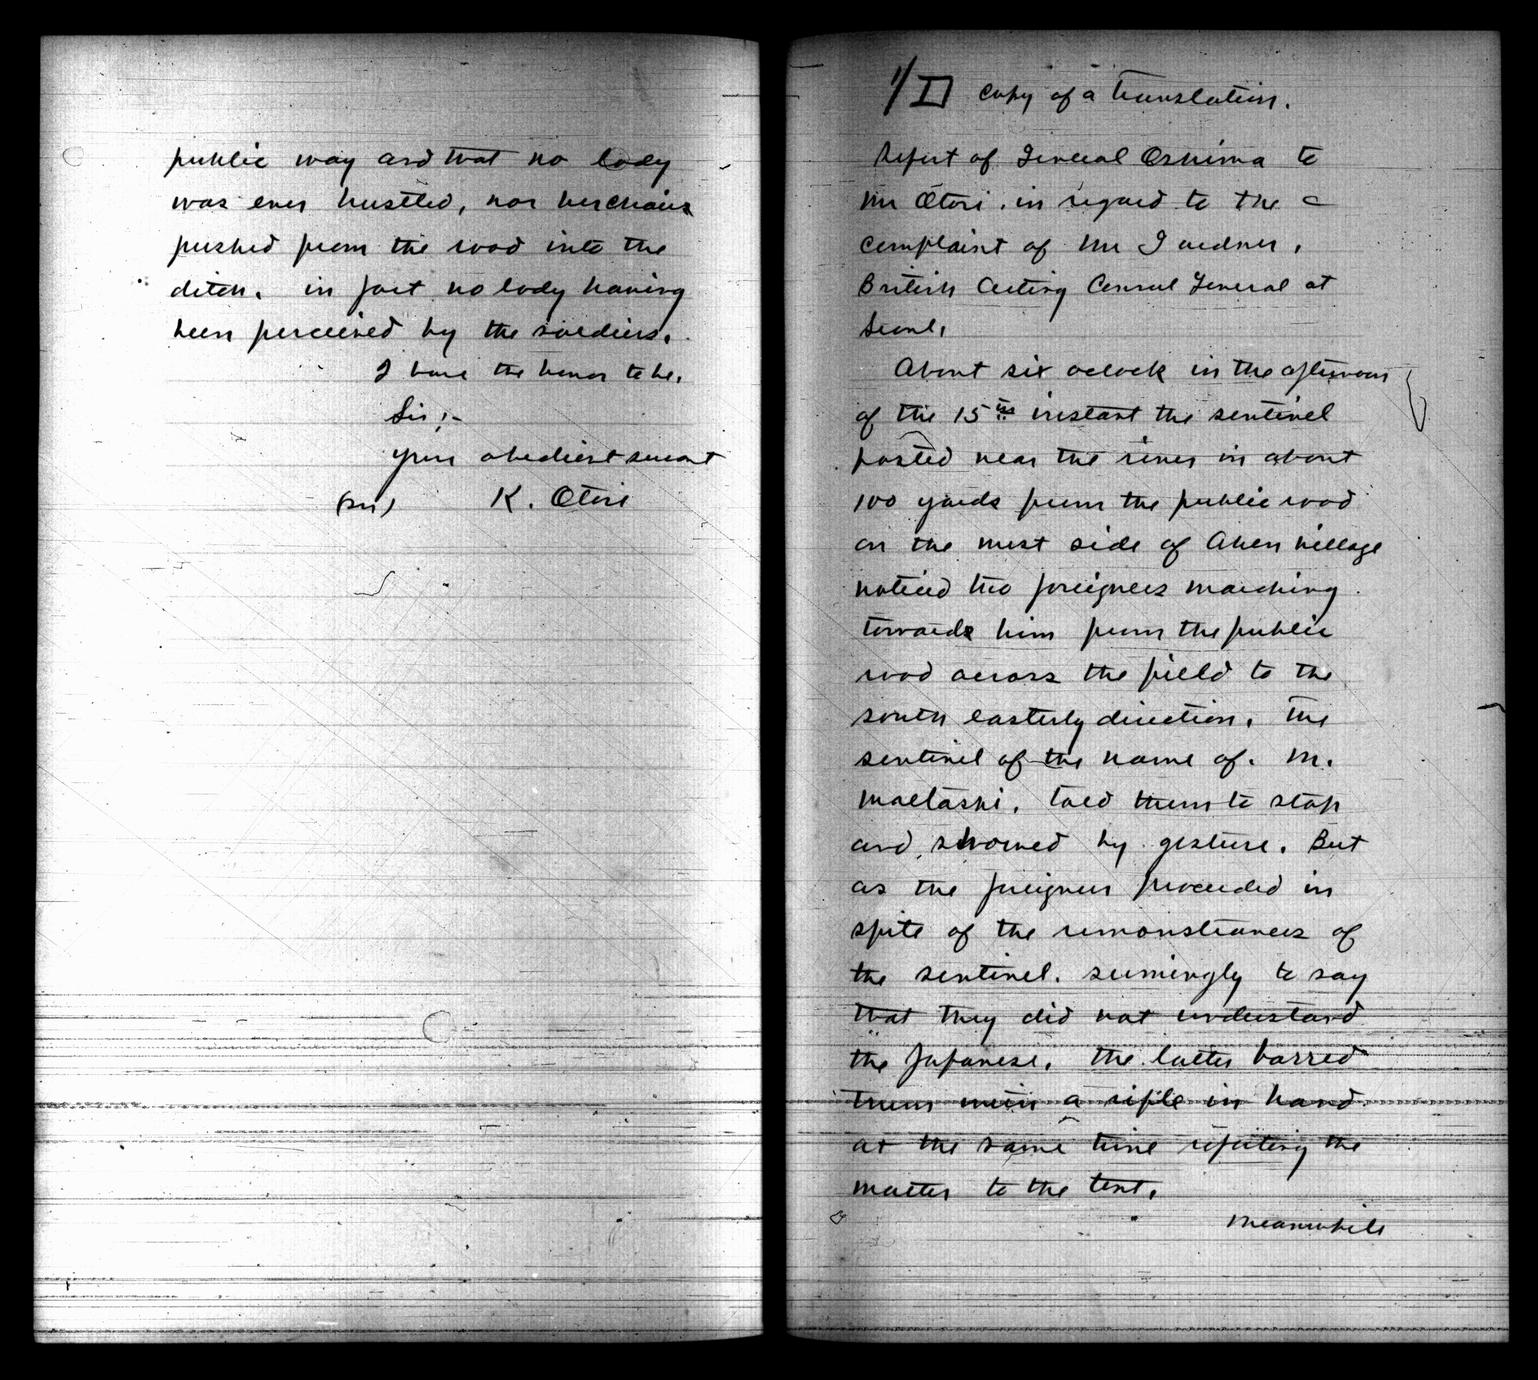 public way and that no lady
was ever hustled, nor her chair
pushed from the road into the
ditch. in fact no lady having
been perceived by the soldiers.
I have the honor to be.
Sir:-
your obedient servant
K. Otori
1/ copy of a translation.
Report of General Oshima to
Mr Otori. in regard to the
complaint of Mr Gardner,
British Acting Consul General at
Seoul.
About six oclock in the afternoon
of the 15th instant the sentinel
posted near the river in about
100 yards from the public road
on the west side of Ahen village
noticed two foreigners marching
towards him from the public
road across the field to the
south easterly direction. The
sentinel of the name of. M.
told them to stop
and showed by gesture. But
as the foreigners proceeded in
spite of the remonstrances of
the sentinel. seemingly to say
that they did not understand
the Japanese. the latter barred
them with a rifle in hand
at the same time reporting the
matter to the tent.
Meanwhile